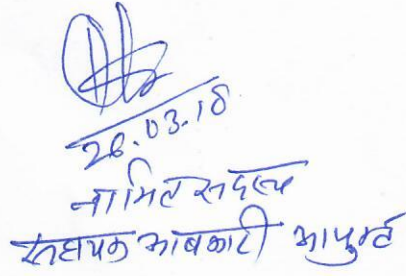 28.03.18
नामित सदस्य
सहायक आबकारी आयुक्त